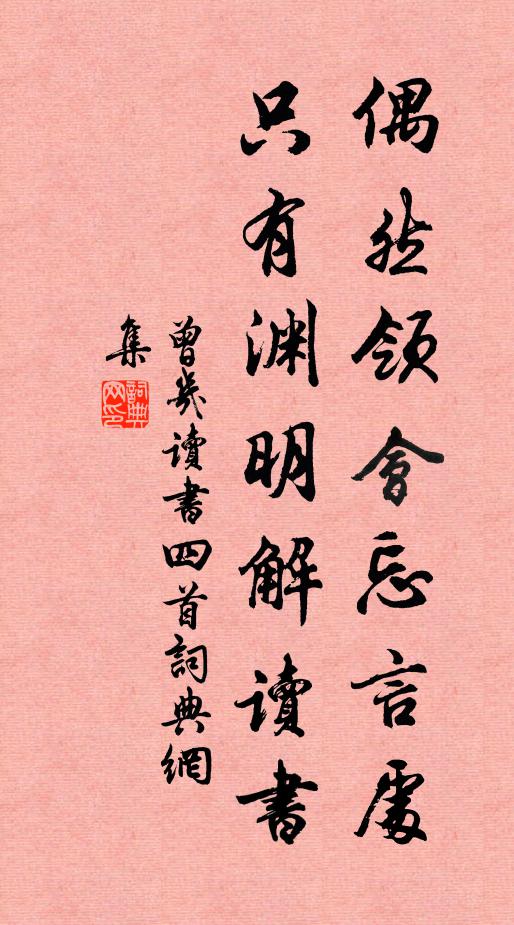 偶然領會忘言處
只有渊明解讀書
曾幾讀書四首詞典網
集
詞典
网印